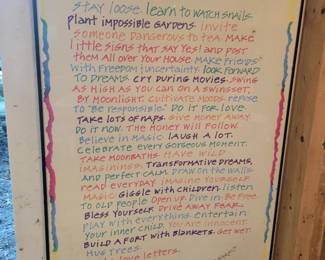 stay loose. learn to watch snails.
plant impossible gardens. invite
someone dangerous to tea. make
little signs that say yes! and post
them all over your house. make friends
with freedom & uncertainty. look forward
to dreams. cry during movies. swing
as high as you can on a swingset,
by moonlight. cultivate moods. refuse
to "be responsible." do it for love.
take lots of naps. give money away.
do it now. the money will follow.
believe in magic. laugh a lot.
celebrate every gorgeous moment.
take moonbaths. have wild
imaginings. transformative dreams,
and perfect calm. draw on the walls.
read everyday. imagine yourself
magic. giggle with children. listen
to old people. open up. dive in. be free.
bless yourself. drive away fear.
play with everything. entertain
your inner child. you are innocent.
build a fort with blankets. get wet.
hug trees.
love letters.